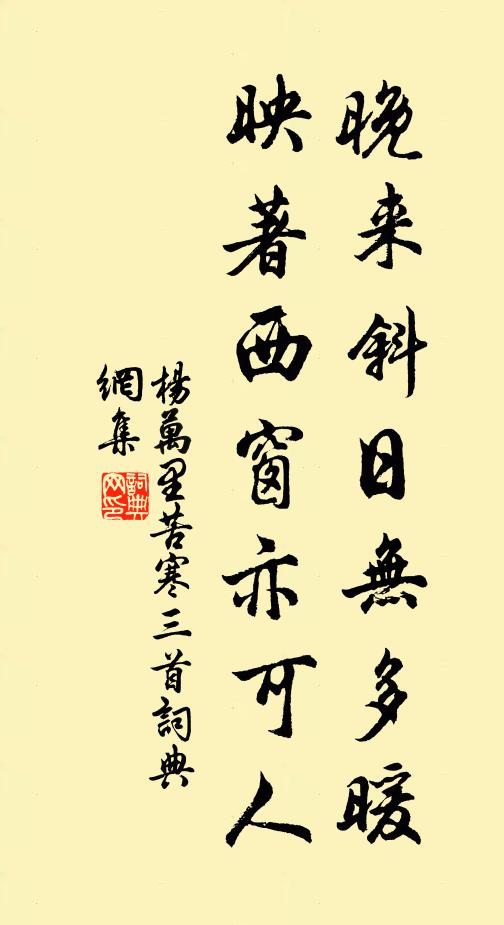 晚来斜日無多暖
映著西窗亦可人
楊萬里苦寒三首詞典
網集
詞典
网印